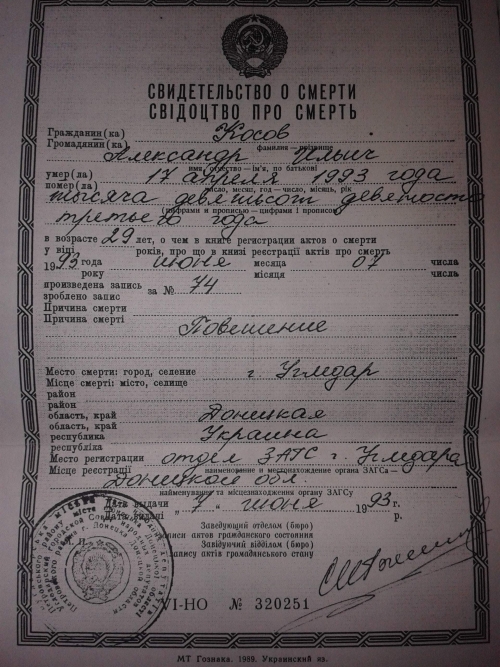 СВИДЕТЕЛЬСТВО О СМЕРТИ
СВІДОЦТВО ПРО СМЕРТЬ
Гражданин(ка) Косов
Громадянин(ка) фамилия — прізвище
Александр Ильич
имя, отчество — ім'я, по батькові
умер(ла) 17 апреля 1993 года
помер(ла) число, месяц, год — число, місяць, рік
тысяча девятьсот девяносто
(цифрами и прописью — цифрами і прописом)
третьего года
в возрасте 29 лет, о чем в книге регистрации актов о смерти
у віці років, про що в книзі реєстрації актів про смерть
1993 года июня месяца 07 числа
року місяця числа
произведена запись за № 74
зроблено запис
Причина смерти
Причина смерті
Повешение
Место смерти: город, селение г. Угледар
Місце смерті: місто, селище
район
район
область, край Донецкая
область, край
республика Украина
республіка
Место регистрации отдел ЗАГС г. Угледара
Місце реєстрації наименование и местонахождение органа ЗАГСа —
Донецкой обл.
найменування та місцезнаходження органу ЗАГСу
Дата выдачи „7" июня 1993 г.
Дата видачі р.
Заведующий отделом (бюро)
записи актов гражданского состояния
Завідуючий відділом (бюро)
запису актів громадянського стану
VI-НО № 320251
МТ Гознака. 1989. Украинский яз.